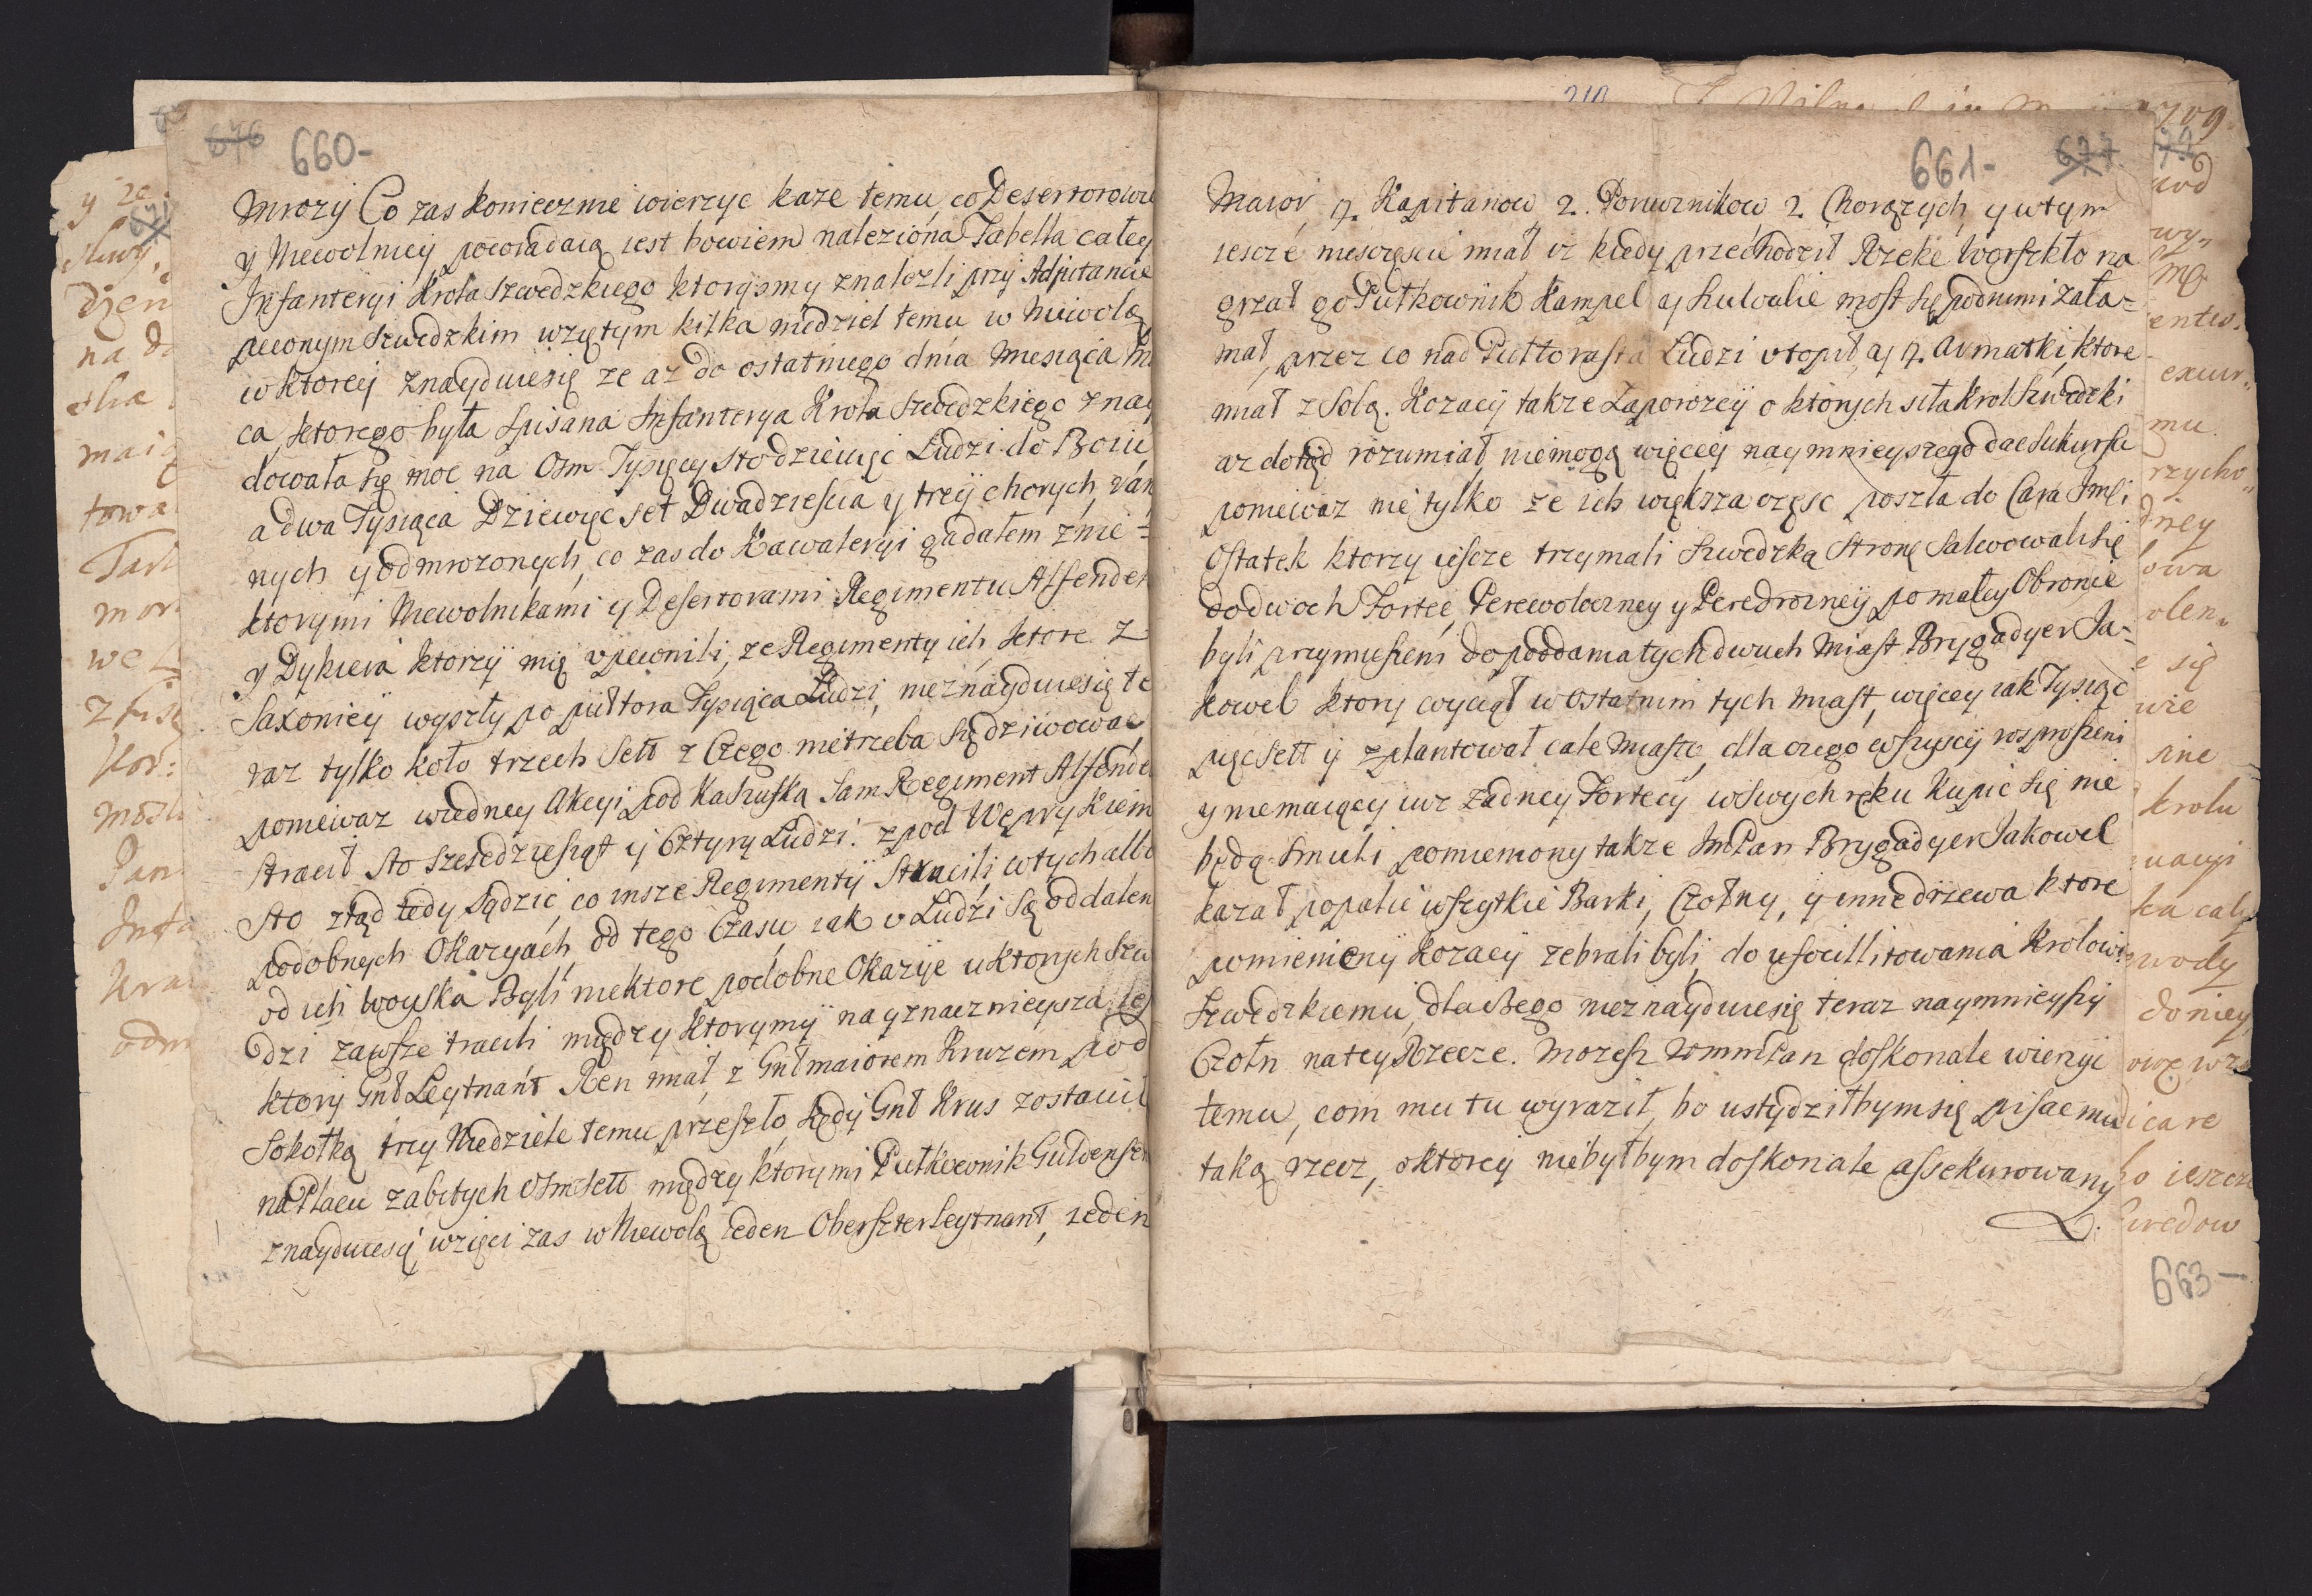 676 660-
mrozy Co zas koniecznie wierzyc kaze temu co Desertorowie
y Niewolnicy powiadaią iest bowiem naleziona Tabella całey
Infanteryi Krola Szwedzkiego ktorysmy znalezli przy Adjutancie
pewnym Szwedzkim wziętym kilka niedziel temu w Niewolą
w ktorey znayduiesię ze az do ostatniego dnia Miesiąca
ca ktorego była spisana Infanterya Krola Szwedzkiego znay
dowała się moc na Osm Tysięcy sto dziewięc Ludzi do Boiu
a dwa Tysiąca Dziewięc set Dwadziescia y trzy chorych, ran
nych y odmrozonych, co zas do Kawaleryi gadałem z nie-
ktorymi Niewolnikami y Desertorami Regimentu Alfenden
y Dykiera ktorzy mię upewnili, ze Regimenty ich ktore z
Saxoniey wyszły po pułtora Tysiąca Ludzi, nieznayduiesię te
raz tylko koło trzech Sett z Czego nietrzeba się dziwowac
poniewaz wiedney Akcyi pod Kaszuską Sam Regiment Alfenden
stracił sto szescdziesiąt y Cztyry Ludzi. z pod Wepryku
sto ztąd tedy sądzic, co insze Regimenty stracili w tych albo
podobnych Okazyach od tego Czasu iak v Ludzi są oddalen
od ich woyska Byli niektore podobne Okazye u ktorych szwe
dzi zawsze tracili między ktorymy nayznacznieysza iest
ktory Gnł Leytnant Ren miał z Gnł maiorem Kruzem pod
Sokołką trzy Niedziele temu przeszło kędy Gnł Krus zostawił
na Placu zabitych Osmsett między ktorymi Pułkownik Guldenszt
znayduiesię wzięci zas w Niewolą ieden Oberszterleytnant, ieden
661- 677
Maior, 7. Kapitanow 2. Poruznikow 2. Chorązych, y wtym
iescze niesczęscie miał iz kiedy przechodził Rzekę Worszkło na
grzał go Pułkownik Kampel y most się podniemi zała-
mał, przez co nad Pułtorasta Ludzi vtopił, y 7. Armatki, ktore
miał z Sobą. Kozacy takze Zaporozcy o ktorych siła Krol Szwedzki
az dotąd rozumiał, niemogą więcey naymnieyszego dac sukursu
poniewaz nie tylko ze ich większa częsc poszła do Cara Jmci
Ostatek ktorzy iescze trzymali Szwedzką stronę Salwowali się
do dwoch Fortec, Perewoloczney y Peredrozney po małey Obronie
byli przymuszeni do poddania tych dwuch Miast Brygadyer Ja-
kowel ktory wyciął w ostatnim tych Miast, więcey iak Tysiąc
pięcsett y zplantował całe Miasto, dla czego wszyscy rosproszeni
y niemaiący iuz zadney Fortecy w swych ręku Kupic się nie
będą Smieli pomieniony takze ImPan Brygadyer Jakowel
kazał popalic wszytkie Barki, Czołny, y inne drzewa ktore
pomienieny Kozacy zebrali byli, do ufacillitowania Krolowi
Szwedzkiemu, dla czego nieznayduiesię teraz naymnieyszy
Czołn na tey Rzecze. Mozesz WmmPan doskonale wierzyc
temu, com mu tu wyraził, bo ustydziłbym się pisac mu
taką rzecz, o ktorey niebyłbym doskonale assekurowany
663-